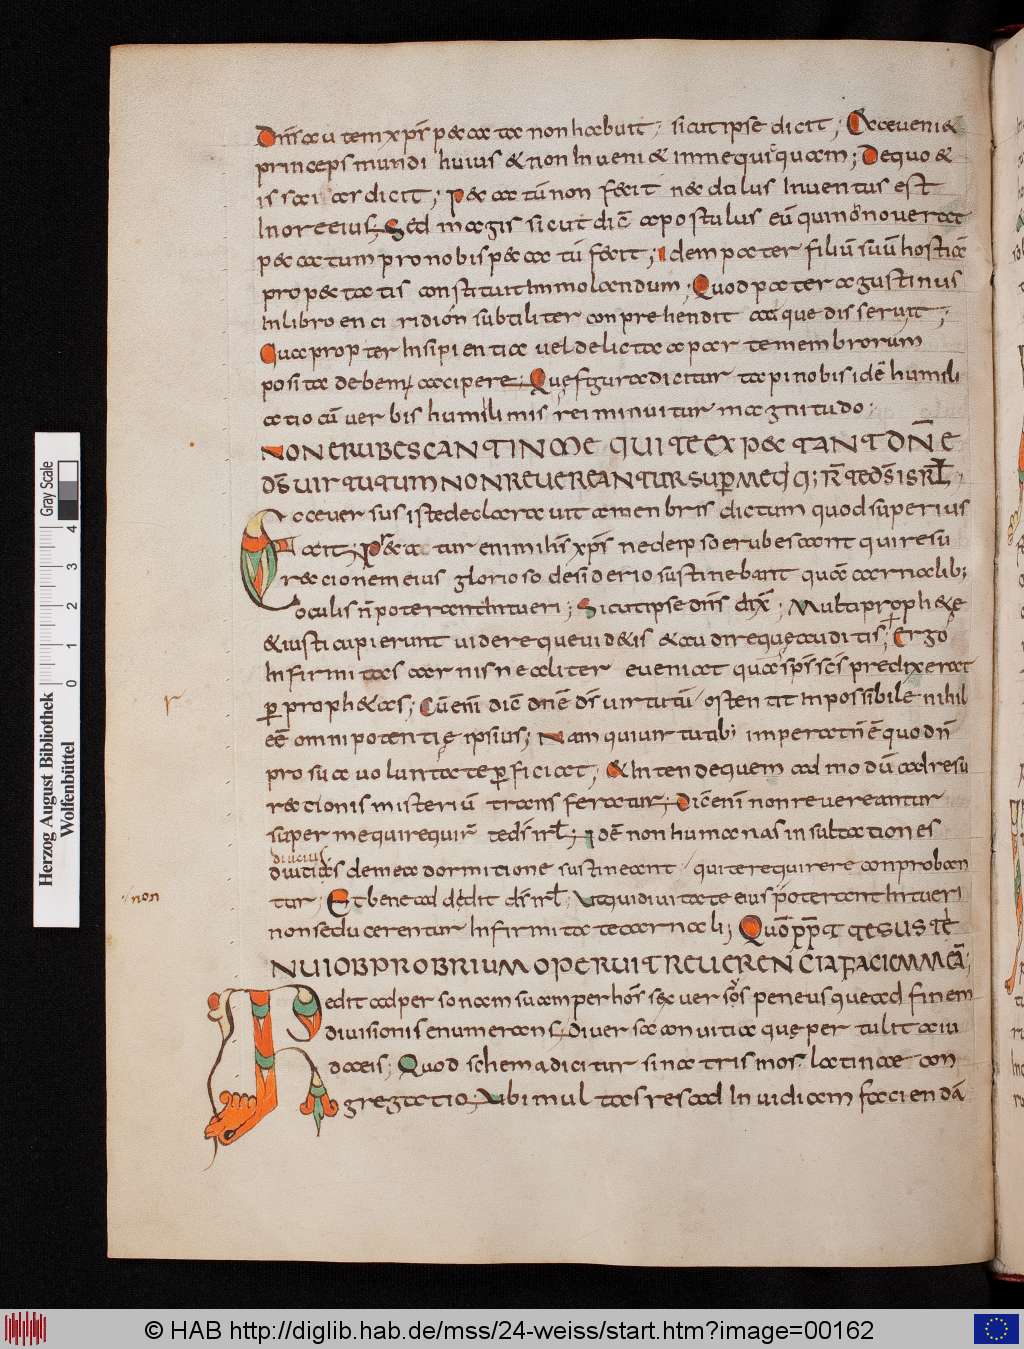 Dñs autem xps peccata non habuit, sicut ipse dicit; Ecce uenit
princeps mundi huius & non inuenit in me quicquam; De quo &
isaias ar dicit; Peccatū non fecit nec dolus inuentus est
in ore eius; Sed magis sicut dic̄ apostolus eū qui non nouerat
peccatum pro nobis peccatū fecit; Idem pater filiū suū hostiā
pro peccatis constituit immolandum; Quod pater agustinus
in libro enciridión subtiliter conprehendit atque disseruit;
Quae propter insipientia uel delicta a parte membrorum
posita debem; accipere; Que figura dicitur tapinosis idē humili
atio cū uerbis humilimis rei minuitur magnitudo;
NON ERUBESCANT IN ME QUI TE EXPECTANT DNE
DS̄ UIRTUTUM NON REUEREANTUR SUP ME Q; QR̄ TE DS̄ ISRL̄
Ecce uersus iste declarauit a menbris dictum quod superius
ait; Precatur enim hīs xps̄ ne de ipso erubescant qui resū
rectionem eius glorioso desiderio sustinebant quā carnalib;
oculis n̄ poterant intueri; Sicut ipse dn̄s dix̄; Multi proph&e
& iusti cupierunt uidere que uid&is & audire que auditis; Ergo
infirmitas carnis ne aliter eueniat quā sp̄s sc̄i predixerat
ꝑ proph&as; Cū enī dic̄ dn̄e ds̄ uirtutū ostendit inpossibile nihil
eē omnipotentie ipsius; Nam qui uirtutib; imperat n̄ ē quod n̄
pro sua uoluntate ꝑficiat; & intende quem ad modū ad resu
rectionis misteriū transferatur; Dic̄ enī non reuereantur
super me qui requir̄ te ds̄ isrl̄; Idē non humanas insultationes
diucius
diuitias de mea dormitione sustineant qui te requirere conproban
non
tur; Et bene addedit ds̄ isrl̄; Ut qui diuitate eius poterant intueri
non seducerentur infirmitate carnali; Quō ꝓpt̄ gesus te
NUI OBPROBRIUM OPERUIT REUERENCIA FACIEM MEĀ;
Redit ad personam suam per hos sex uersos peneus que ad finem
diuisionis enumerans diuersa conuitia que pertulit a iu
daeis; Quod schema dicitur sinatrismos latinae con
gregatio; Ubi multas res ad inuidiam faciendā
r
Herzog August Bibliothek
Wolfenbüttel
Gray Scale
0 1 2 3 4
© HAB http://diglib.hab.de/mss/24-weiss/start.htm?image=00162